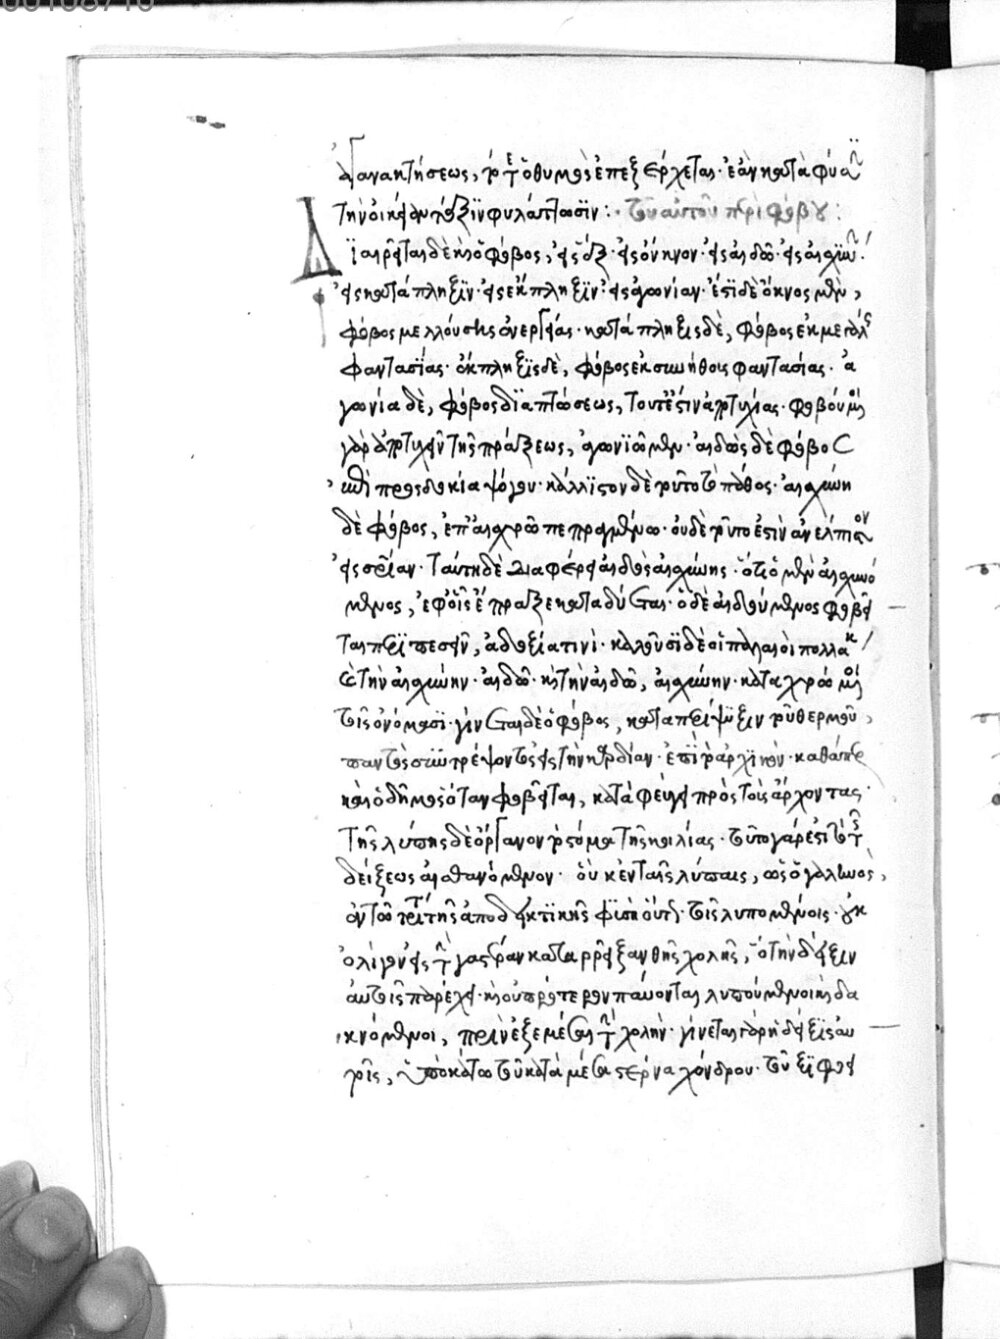 ἀγανακτήσεως, ὁ τότε ὁ θυμὸς ἐπεξέρχεται· ἐὰν κατὰ φύσιν
τὴν οἰκείαν τάξιν φυλάττωσιν:· τοῦ αὐτοῦ περὶ φόβου:
Διαιρεῖται δὲ καὶ ὁ φόβος, εἰς ἕξ· εἰς ὄκνον· εἰς αἰδῶ· εἰς αἰσχύνην·
εἰς κατάπληξιν· εἰς ἔκπληξιν· εἰς ἀγωνίαν· ἔστι δὲ ὄκνος μὲν,
φόβος μελλούσης ἐνεργείας· κατάπληξις δὲ, φόβος ἐκ μεγάλης
φαντασίας· ἔκπληξις δὲ, φόβος ἐξ ἀσυνήθους φαντασίας· ἀ
γωνία δὲ, φόβος διαπτώσεως, τουτέστιν ἀποτυχίας· φοβούμενοι
γὰρ ἀποτυχεῖν τῆς πράξεως, ἀγωνιῶμεν· αἰδὼς δὲ φόβος
ἐπὶ προσδοκία ψόγου· κάλλιστον δὲ τοῦτο τὸ πάθος· αἰσχύνη
δὲ φόβος, ἐπ' αἰσχρῷ πεπραγμένω· οὐδὲ τοῦτο ἐστὶν ἀνέλπιστον
εἰς σωτηρίαν· ταύτη δὲ διαφέρει αἰδὼς αἰσχύνης· ὅτι ὁ μὲν αἰσχυνό
μενος, ἐφ' οἷς ἔπραξε καταδύεται· ὁ δὲ αἰδούμενος φοβεῖ
ται περιπεσεῖν, ἀδοξία τινὶ· καλοῦσι δὲ οἱ παλαιοὶ πολλάκις
καὶ τὴν αἰσχύνην· αἰδῶ· καὶ τὴν αἰδῶ, αἰσχύνην· καταχρώμενοι
τοῖς ὀνόμασι· γίνεται δὲ ὁ φόβος, κατὰ περίψυξιν τοῦ θερμοῦ,
παντὸς συντρέχοντος εἰς τὴν καρδίαν· ἐπὶ τὸ ἀρχικόν· καθάπερ
καὶ ὁ δῆμος ὅταν φοβεῖται, καταφεύγει πρὸς τοὺς ἄρχοντας·
τῆς λύπης δὲ ὄργανον τὸ στόμα τῆς κοιλίας· τοῦτο γάρ ἐστι τὸ τῆς
δείξεως αἰσθανόμενον· οὐκ ἐν ταῖς λύπαις, ὡς ὁ γαληνὸς,
ἐν τῶ τρίτω τῆς ἀποδεικτικῆς φησὶν οὕτως· τοῖς λυπομένοις· οὐκ
ὀλίγον εἰς τὴν γαστέραν καταρρεῖ ξανθῆς χολῆς, ὃ τὴν δῆξιν
αὐτοῖς παρέχει· καὶ οὐ πρότερον παύονται λυπούμενοι καὶ δα
κνόμενοι, πρὶν ἐξεμέσαι τὴν χολήν· γίνεται γὰρ ἡ δῆξις αὐ
τοῖς, ὑποκάτω τοῦ κατὰ μέσα στέρνα χόνδρου· τοῦ ξιφοει